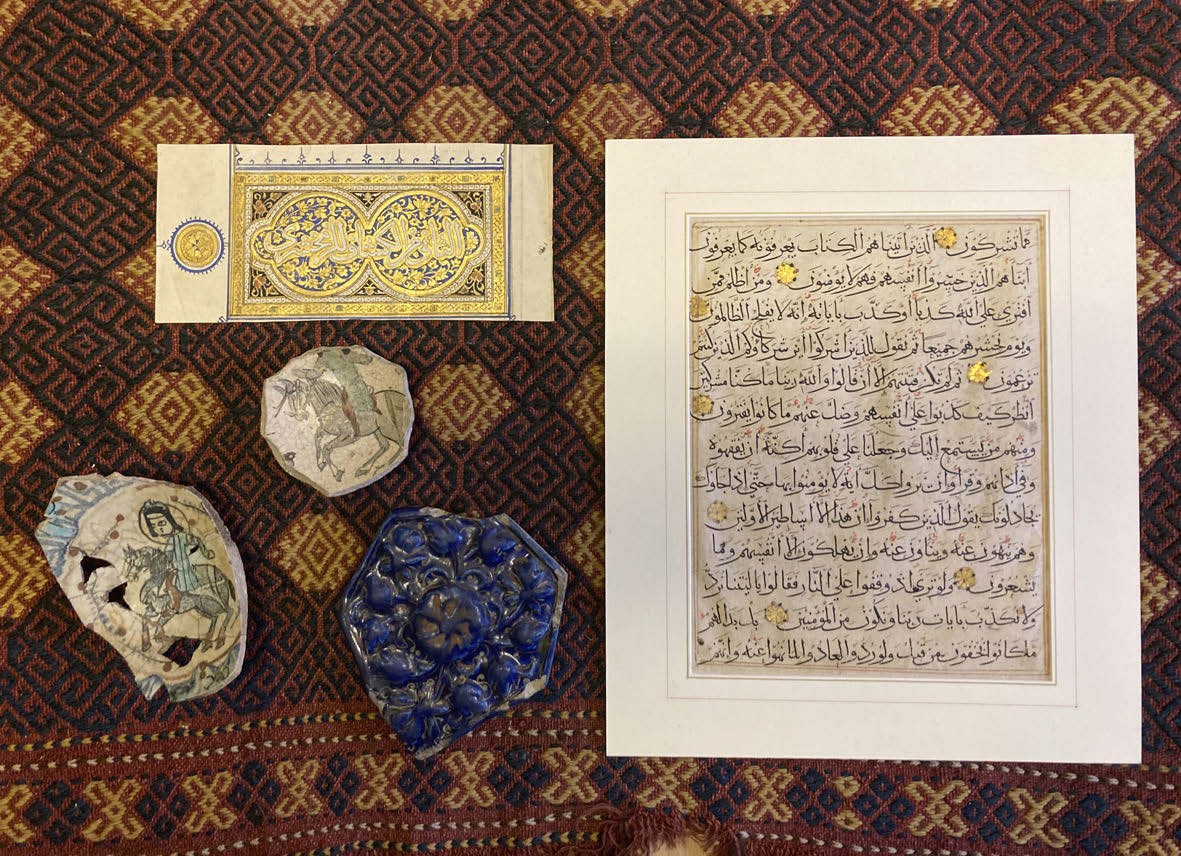 مما تشركون الذين آتيناهم الكتاب يعرفونه كما يعرفون
أبناءهم الذين خسروا أنفسهم فهم لا يؤمنون ومن أظلم ممن
افترى على الله كذبا أو كذب بآياته إنه لا يفلح الظالمون
ويوم نحشرهم جميعا ثم نقول للذين أشركوا أين شركاؤكم الذين كنتم
تزعمون ثم لم تكن فتنتهم إلا أن قالوا والله ربنا ما كنا مشركين
انظر كيف كذبوا على أنفسهم وضل عنهم ما كانوا يفترون
ومنهم من يستمع إليك وجعلنا على قلوبهم أكنة أن يفقهوه
وفي آذانهم وقرا وإن يروا كل آية لا يؤمنوا بها حتى إذا جاؤك
يجادلونك يقول الذين كفروا إن هذا إلا أساطير الأولين
وهم ينهون عنه وينأون عنه وإن يهلكون إلا أنفسهم وما
يشعرون ولو ترى إذ وقفوا على النار فقالوا يا ليتنا نرد
ولا نكذب بآيات ربنا ونكون من المؤمنين بل بدا لهم
ما كانوا يخفون من قبل ولو ردوا لعادوا لما نهوا عنه وإنهم